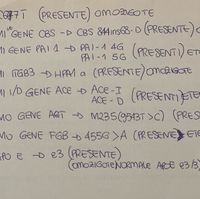 677T (PRESENTE) OMOZIGOTE
GENE CBS → CBS 844ins68-D (PRESENTE)
GENE PAI 1 → PAI-1 4G (PRESENTI) ETE
PAI-1 5G
ITGB3 → HPA1 a (PRESENTE) OMOZIGOTE
I/D GENE ACE → ACE-I (PRESENTI) ETE
ACE-D
MO GENE AGT → M235 (9543T>C) (PRES
MO GENE FGB → 455G>A (PRESENTE) ETE
APO E → e3 (PRESENTE)
(OMOZIGOTE) NORMALE APOE e3/3